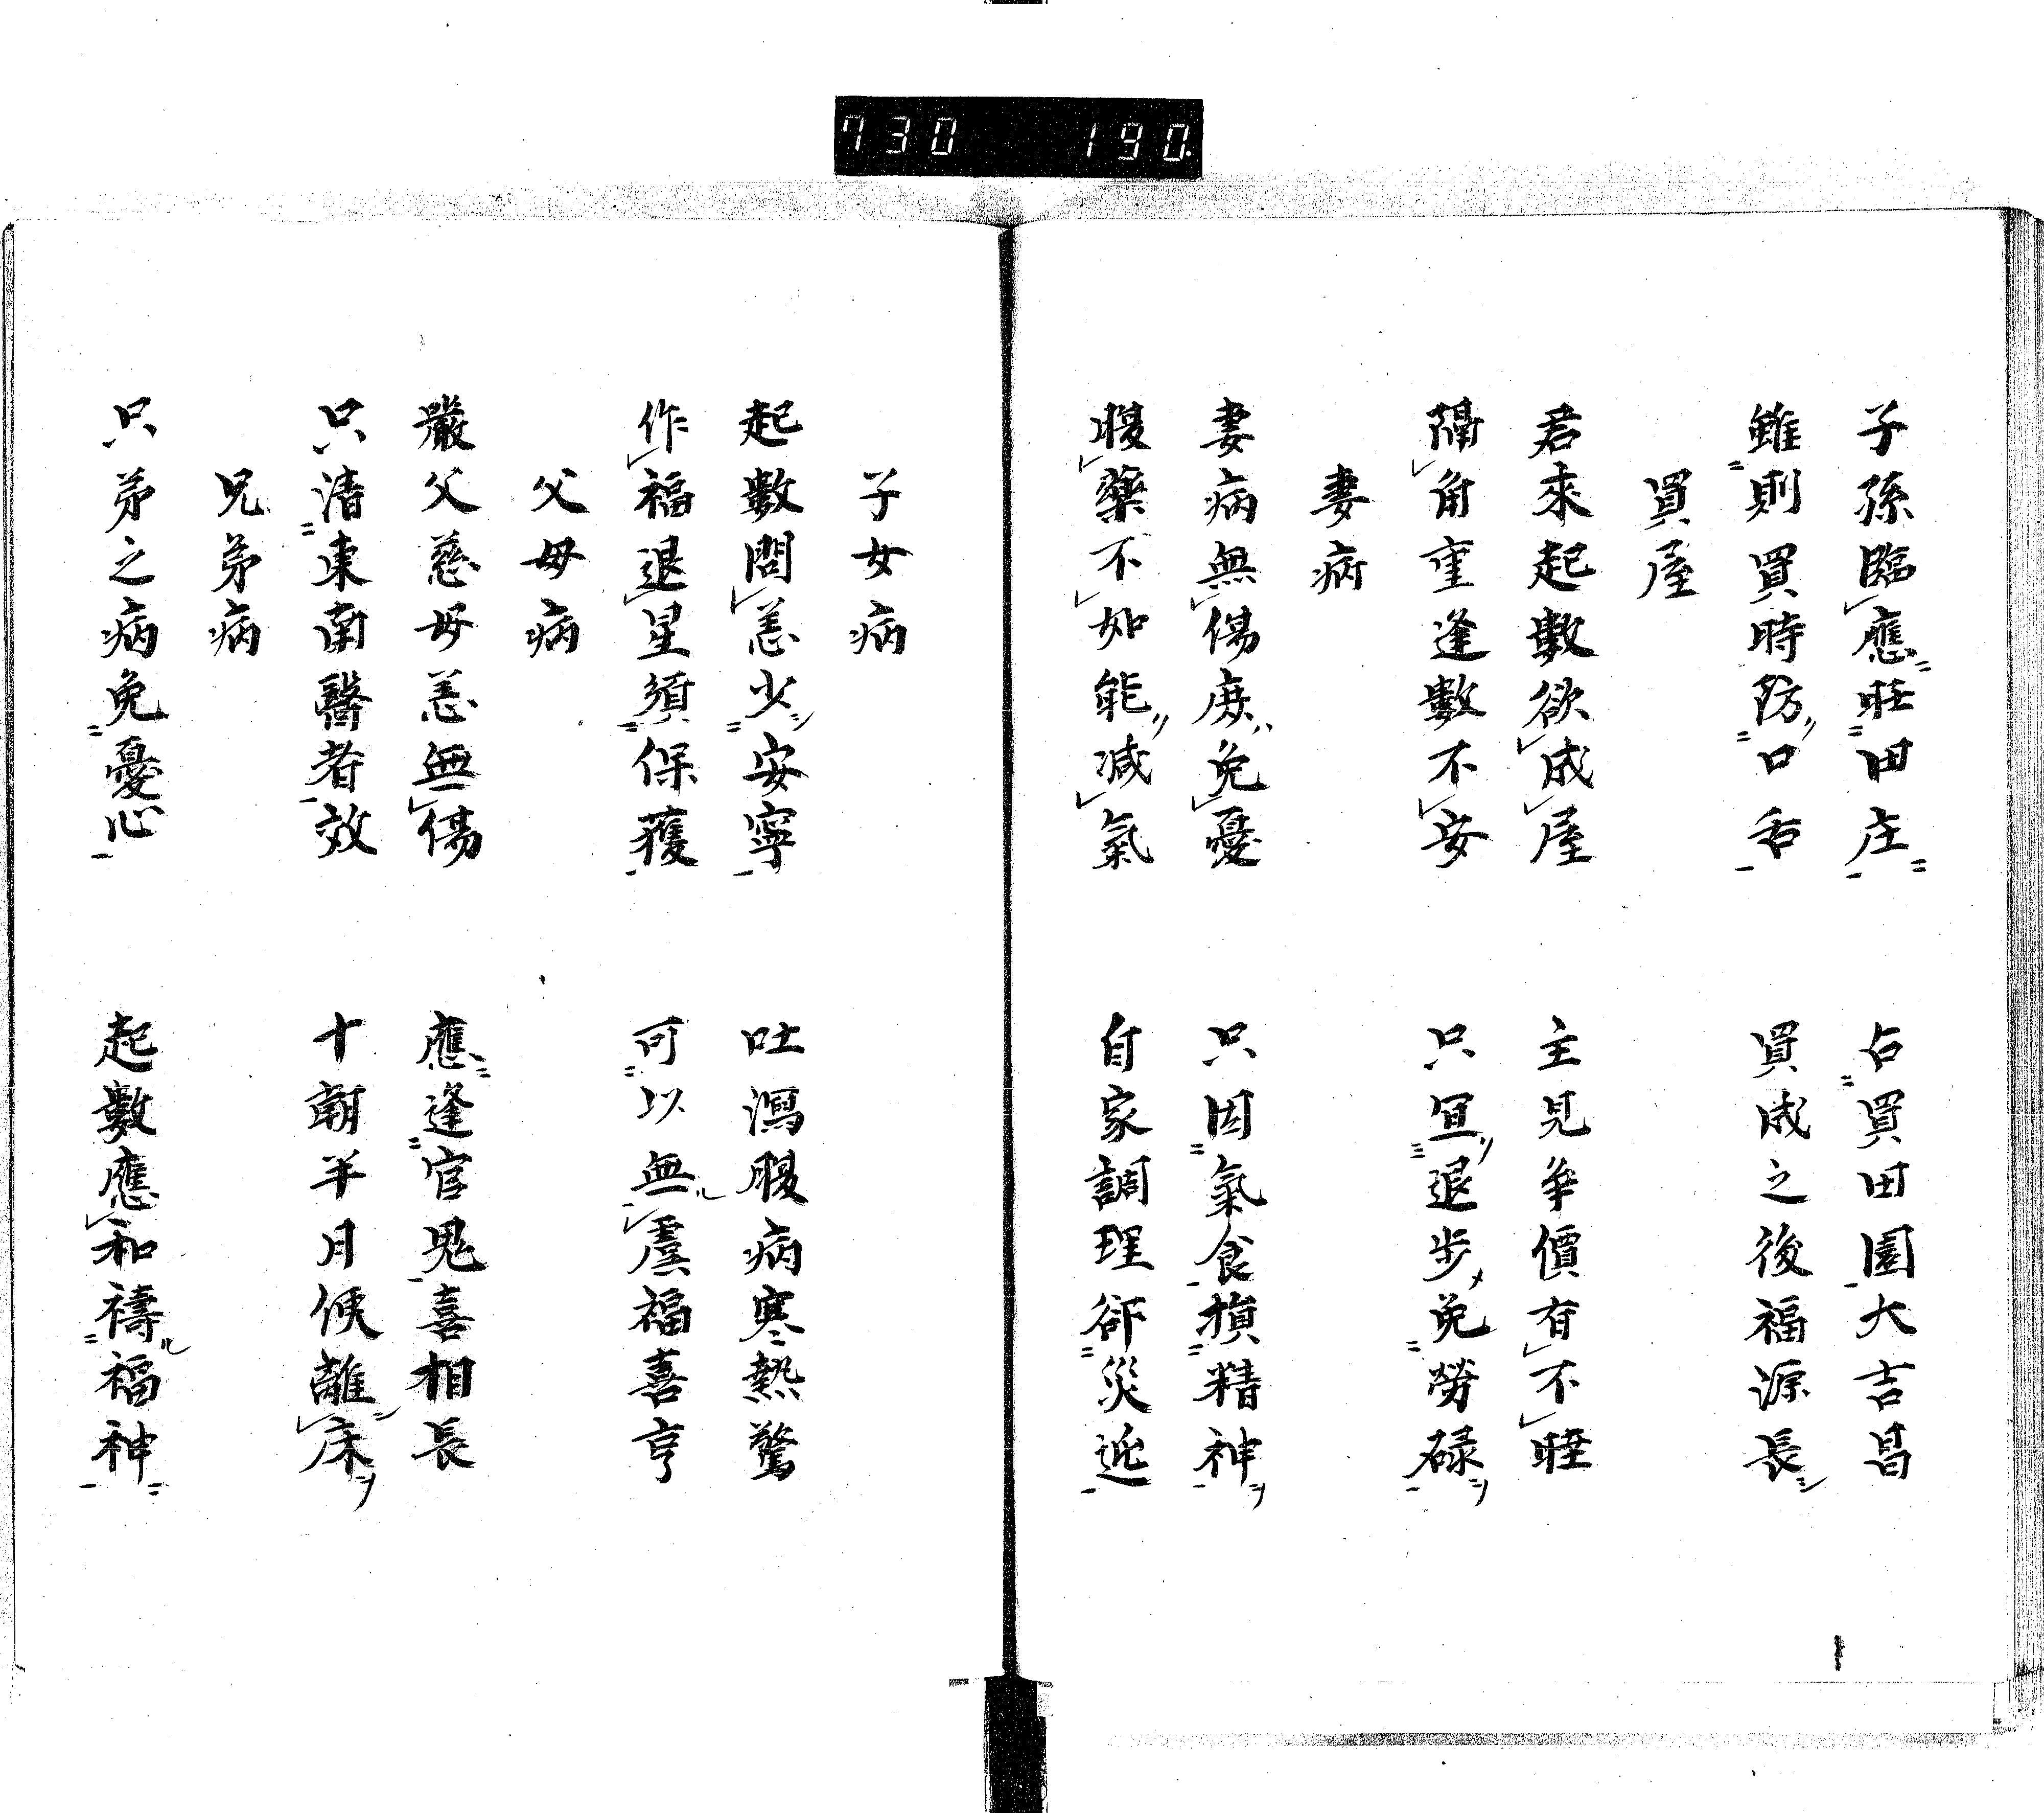 730 190
子孫臨應旺田庄 占買田園大吉昌
雖則買時防口舌 買成之後福源長
買屋
君來起數欲成屋 主見爭價有不旺
隔角重逢數不安 只宜退步免勞碌
妻病
妻病無傷庶免憂 只因氣食損精神
服藥不如能減氣 自家調理卻災迍
子女病
起數問恙少安寧 吐瀉腹病寒熱驚
作福退星須保獲 可以無虞福喜亨
父母病
嚴父慈母恙無傷 應逢官鬼喜相長
只清東南醫者效 十朝半月候離床
兄弟病
只弟之病免憂心 起數應和禱福神